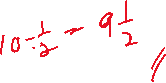 10 - 1/2 = 9 1/2 //